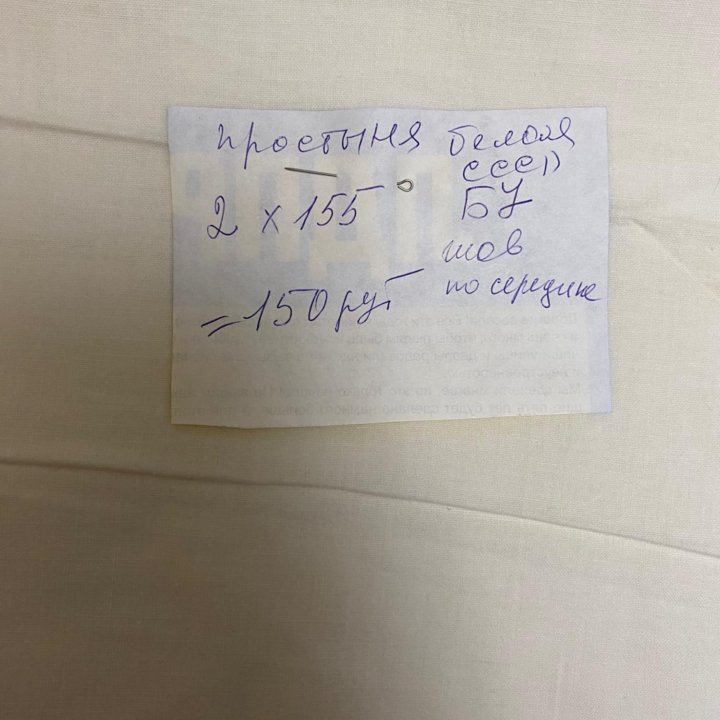 простыня белая
СССР
2 x 155 БУ
шов
по середине
= 150 руб